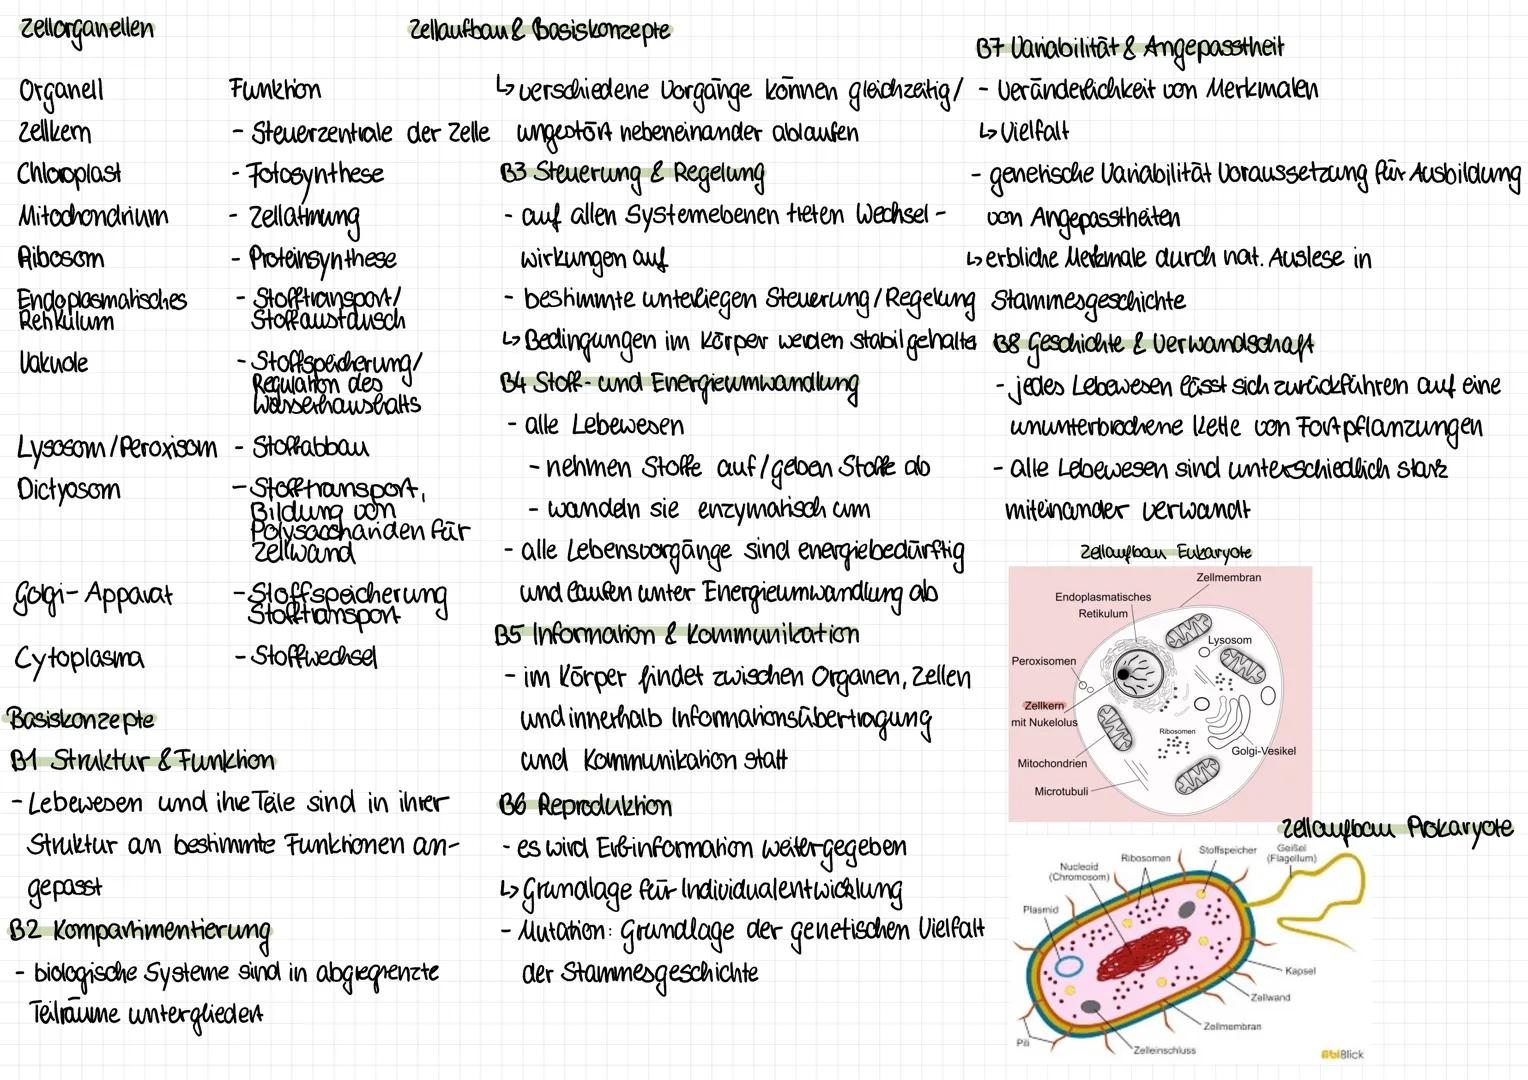 Zellorganellen
Zellaufbau & Basiskonzepte
Organell Funktion
Zellkern - Steuerzentrale der Zelle
Chloroplast - Fotosynthese
Mitochondrium - Zellatmung
Ribosom - Proteinsynthese
Endoplasmatisches - Stofftransport/
Retikulum Stoffaustausch
Vakuole - Stoffspeicherung/
Regulation des
Wasserhaushalts
Lysosom/Peroxisom - Stoffabbau
Dictyosom - Stofftransport,
Bildung von
Polysacchariden für
Zellwand
Golgi-Apparat - Stoffspeicherung
Stofftransport
Cytoplasma - Stoffwechsel
Basiskonzepte
B1 Struktur & Funktion
- Lebewesen und ihre Teile sind in ihrer
Struktur an bestimmte Funktionen an-
gepasst
B2 Kompartimentierung
- biologische Systeme sind in abgegrenzte
Teilräume untergliedert
↳ verschiedene Vorgänge können gleichzeitig/
ungestört nebeneinander ablaufen
B3 Steuerung & Regelung
- auf allen Systemebenen treten Wechsel-
wirkungen auf
- bestimmte unterliegen Steuerung/Regelung
↳ Bedingungen im Körper werden stabil gehalte
B4 Stoff- und Energieumwandlung
- alle Lebewesen
- nehmen Stoffe auf/geben Stoffe ab
- wandeln sie enzymatisch um
- alle Lebensvorgänge sind energiebedürftig
und laufen unter Energieumwandlung ab
B5 Information & Kommunikation
- im Körper findet zwischen Organen, Zellen
und innerhalb Informationsübertragung
und Kommunikation statt
B6 Reproduktion
- es wird Erbinformation weitergegeben
↳ Grundlage für Individualentwicklung
- Mutation: Grundlage der genetischen Vielfalt
der Stammesgeschichte
B7 Variabilität & Angepasstheit
- Veränderlichkeit von Merkmalen
↳ Vielfalt
- genetische Variabilität Voraussetzung für Ausbildung
von Angepasstheiten
↳ erbliche Merkmale durch nat. Auslese in
Stammesgeschichte
B8 Geschichte & Verwandschaft
- jedes Lebewesen lässt sich zurückführen auf eine
ununterbrochene Kette von Fortpflanzungen
- alle Lebewesen sind unterschiedlich stark
miteinander verwandt
Zellaufbau Eukaryote
Zellmembran
Endoplasmatisches
Retikulum
Lysosom
Peroxisomen
Zellkern
mit Nukelolus
Ribosomen
Golgi-Vesikel
Mitochondrien
Microtubuli
Zellaufbau Prokaryote
Stoffspeicher
Geißel
(Flagellum)
Ribosomen
Nucleoid
(Chromosom)
Plasmid
Kapsel
Zellwand
Zellmembran
Pili
Zelleinschluss
AbiBlick